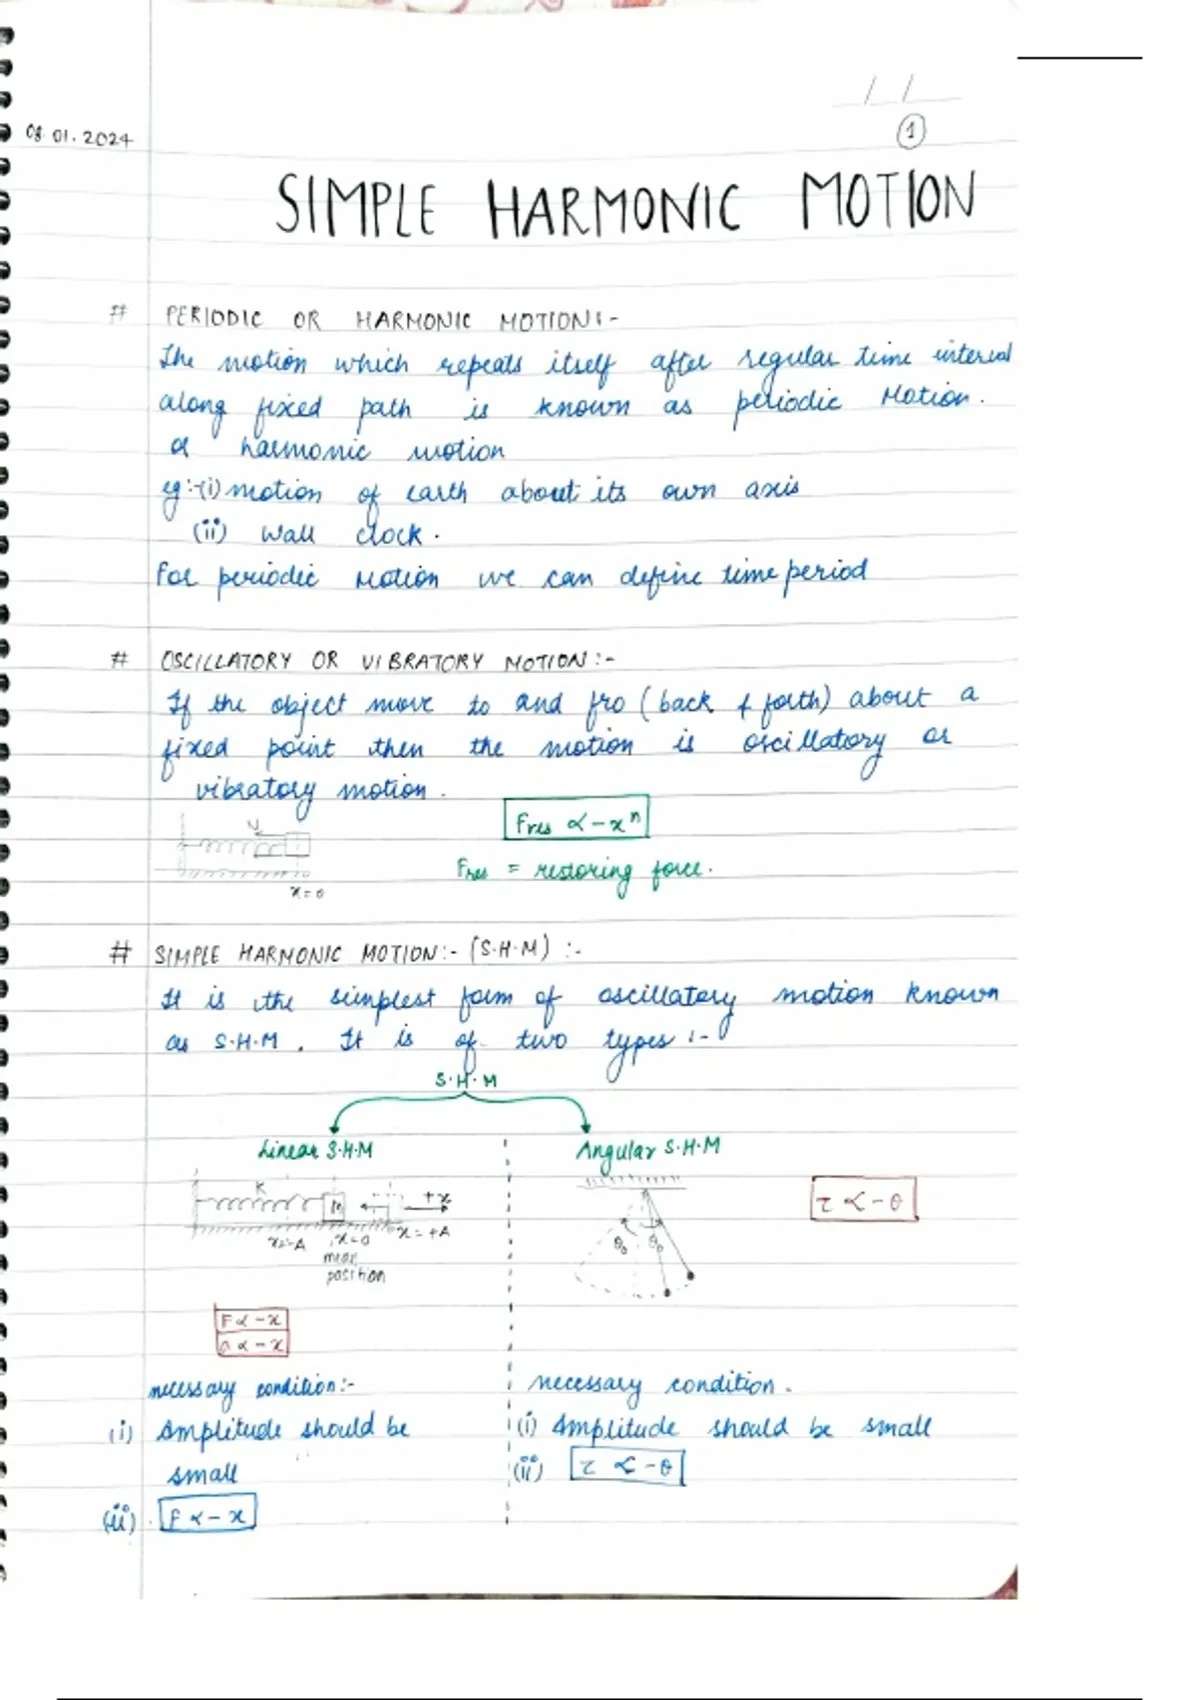 / /
1
08.01.2024
SIMPLE HARMONIC MOTION
# PERIODIC OR HARMONIC MOTION:-
The motion which repeats itself after regular time interval
along fixed path is known as periodic Motion.
or harmonic motion
eg:-(i) motion of earth about its own axis
(ii) Wall clock.
For periodic Motion we can define time period
# OSCILLATORY OR VIBRATORY MOTION:-
If the object move to and fro (back & forth) about a
fixed point then the motion is oscillatory or
vibratory motion.
Fres ∝ -xⁿ
Fres = restoring force.
x=0
# SIMPLE HARMONIC MOTION:- (S.H.M) :-
It is the simplest form of oscillatory motion known
as S.H.M. It is of two types :-
S.H.M
Linear S.H.M
Angular S.H.M
K
m
+x
x=-A
x=0
x=+A
mean
position
θ₀ θ₀
τ ∝ -θ
F ∝ -x
a ∝ -x
necessary condition:-
(i) Amplitude should be
small
(ii) F ∝ -x
necessary condition.
(i) Amplitude should be small
(ii) τ ∝ -θ